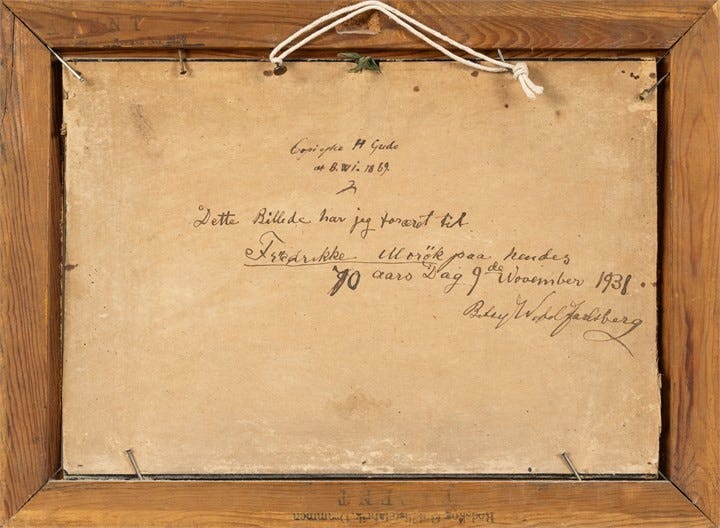 Copi efter H Gude
af B.W.J. 1869.
Dette Billede har jeg foræret til
Fredrikke Morök paa hendes
70 aars Dag 9de November 1931
Betsy Wedel Jarlsberg
Drammen